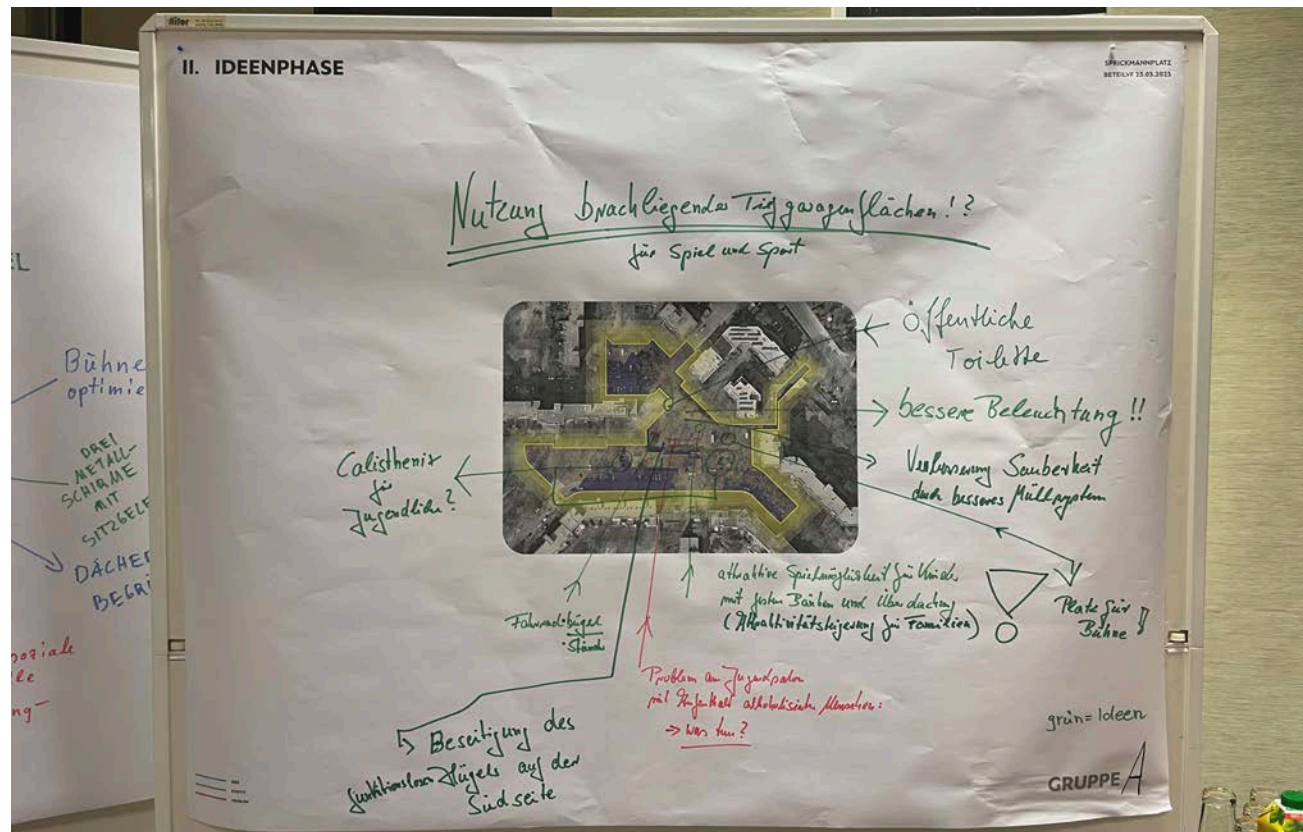 II. IDEENPHASE
SPRICKMANNPLATZ
Nutzung brachliegender Tiefgaragenflächen!?
für Spiel und Sport
Öffentliche
Toilette
bessere Beleuchtung!!
Verbesserung Sauberkeit
durch besseres Müllsystem
Platz für
Bühne
Calisthenix
für
Jugendliche?
Fahrradbügel
Ständer
attraktive Spielmöglichkeit für Kinder
mit festen Bänken und Überdachung
(Attraktivitätsteigerung für Familien)
Problem am Jugendpalon
mit Aufenthalt alkoholisierter Menschen:
→ was tun?
Beseitigung des
funktionslosen Hügels auf der
Südseite
grün = Ideen
GRUPPE A
Bühne
optimie
DREI
METALL-
SCHIRME
MIT
SITZGELE
DÄCHER
BEGRÜ
soziale
ng-